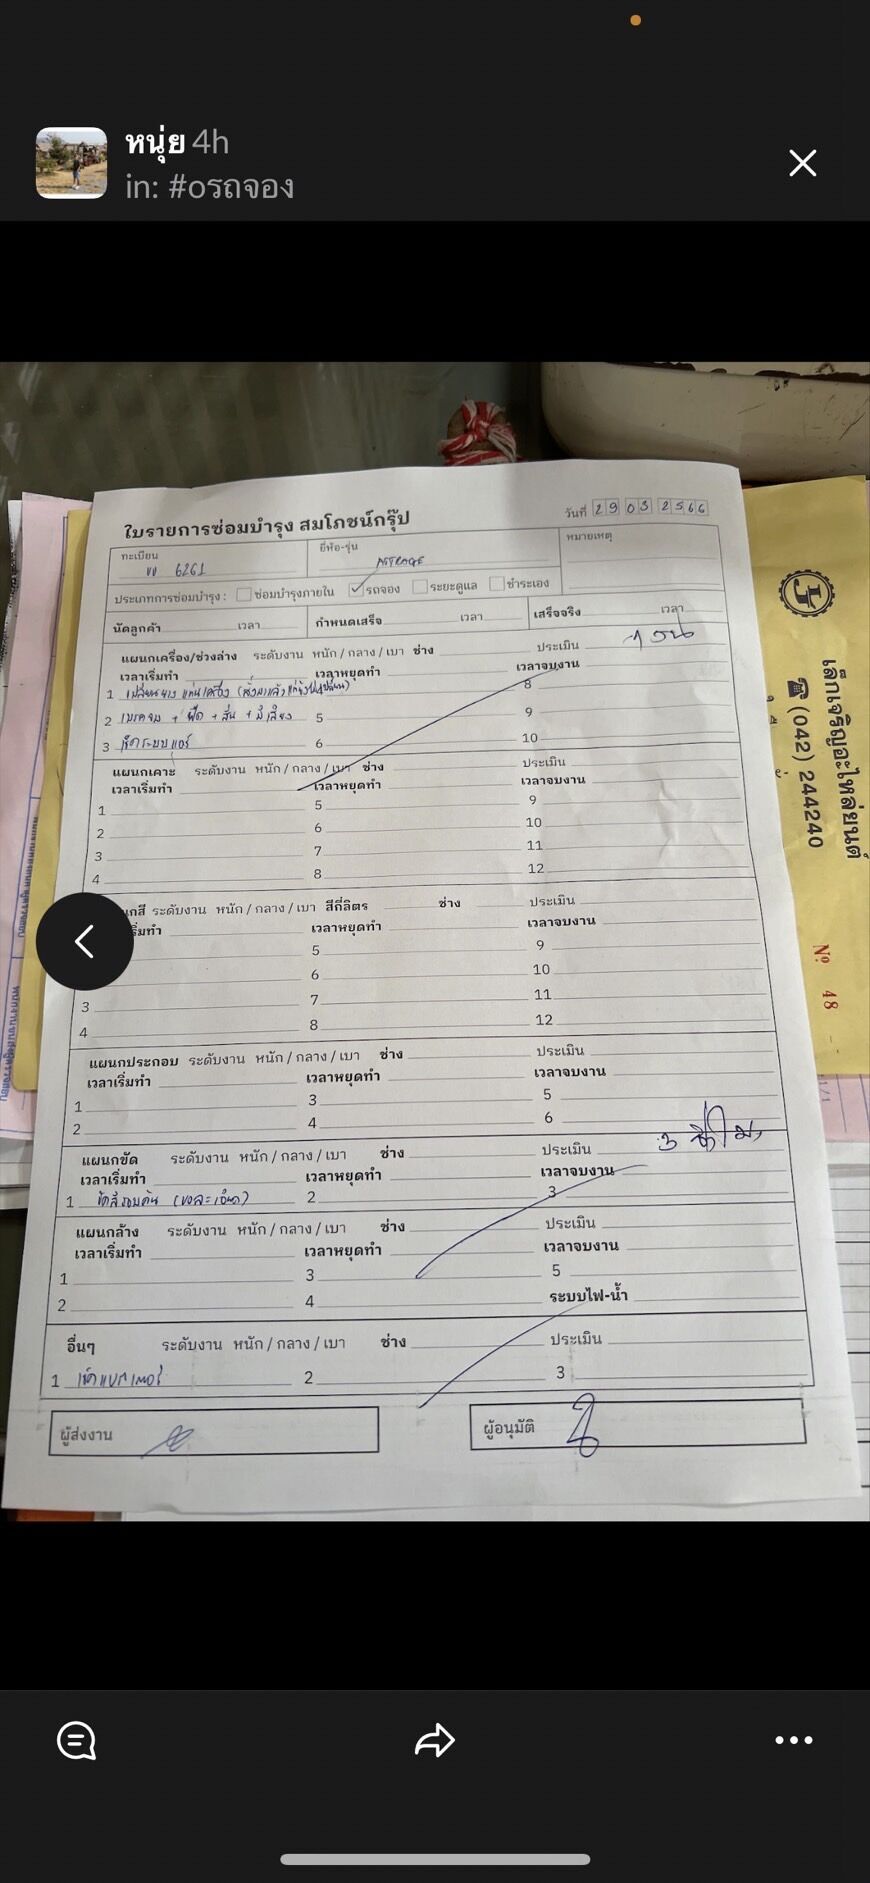 หนุ่ย 4h
in: #oรถจอง
ใบรายการซ่อมบำรุง สมโภชน์กรุ๊ป
วันที่ 29 03 2566
ทะเบียน
6261
ยี่ห้อ-รุ่น
หมายเหตุ
ประเภทการซ่อมบำรุง : ซ่อมบำรุงภายใน รถจอง ระยะดูแล ชำระเอง
นัดลูกค้า เวลา กำหนดเสร็จ เวลา เสร็จจริง เวลา
แผนกเครื่อง/ช่วงล่าง ระดับงาน หนัก / กลาง / เบา ช่าง ประเมิน
เวลาเริ่มทำ เวลาหยุดทำ เวลาจบงาน
1 เปลี่ยนยางแท่นเครื่อง 8
2 เบรคจม + ฝืด + สั่น + มีเสียง 5 9
3 เช็คระบบแอร์ 6 10
แผนกเคาะ ระดับงาน หนัก / กลาง / เบา ช่าง ประเมิน
เวลาเริ่มทำ เวลาหยุดทำ เวลาจบงาน
1 5 9
2 6 10
3 7 11
4 8 12
ระดับงาน หนัก / กลาง / เบา สีกี่ลิตร ช่าง ประเมิน
เวลาหยุดทำ เวลาจบงาน
5 9
6 10
3 7 11
4 8 12
แผนกประกอบ ระดับงาน หนัก / กลาง / เบา ช่าง ประเมิน
เวลาเริ่มทำ เวลาหยุดทำ เวลาจบงาน
1 3 5
2 4 6
แผนกขัด ระดับงาน หนัก / กลาง / เบา ช่าง ประเมิน 3
เวลาเริ่มทำ เวลาหยุดทำ เวลาจบงาน
1 ขัดสีรอบคัน 2 3
แผนกล้าง ระดับงาน หนัก / กลาง / เบา ช่าง ประเมิน
เวลาเริ่มทำ เวลาหยุดทำ เวลาจบงาน
1 3 5
2 4 ระบบไฟ-น้ำ
อื่นๆ ระดับงาน หนัก / กลาง / เบา ช่าง ประเมิน
1 เช็คแบตเตอรี่ 2 3
ผู้ส่งงาน
ผู้อนุมัติ
เล็กเจริญอะไหล่ยนต์
(042) 244240
Nº 48